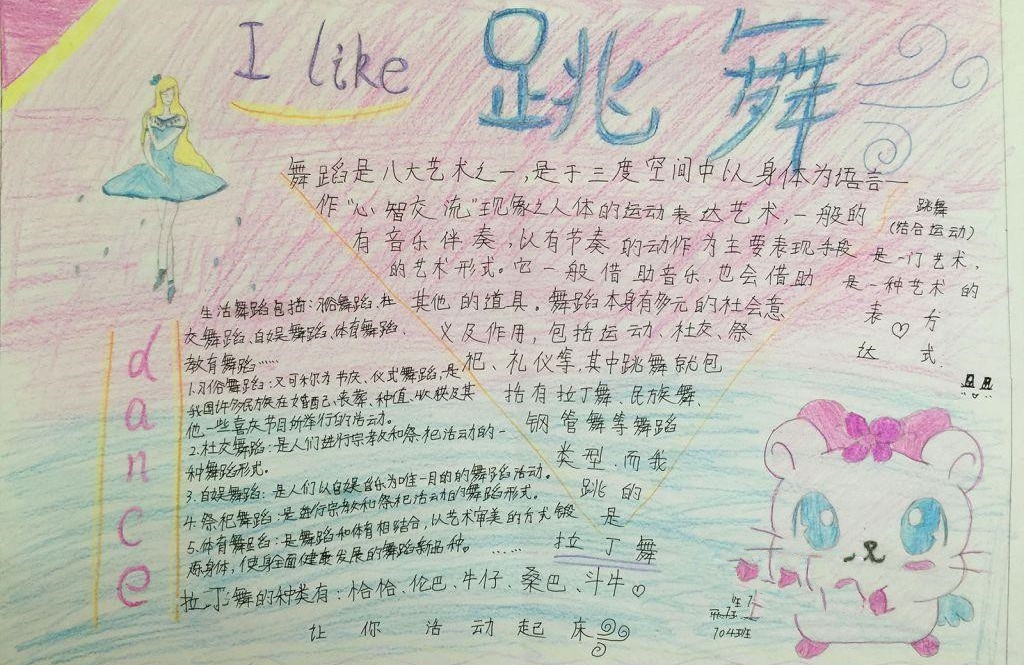 I like 跳舞
舞蹈是八大艺术之一,是于三度空间中以身体为语言
作"心智交流"现象之人体的运动表达艺术,一般的
有音乐伴奏,以有节奏的动作为主要表现手段
的艺术形式。它一般借助音乐,也会借助
其他的道具。舞蹈本身有多元的社会意
义及作用,包括运动、社交、祭
祀、礼仪等,其中跳舞就包
括有拉丁舞、民族舞、
钢管舞等舞蹈
类型.而我
跳的
是
拉丁舞
跳舞
(结合运动)
是一门艺术,
是一种艺术的
表♡方
达式.
dance
生活舞蹈包括:习俗舞蹈,社
交舞蹈、自娱舞蹈、体育舞蹈、
教育舞蹈……
1.习俗舞蹈:又可称为节庆、仪式舞蹈,是
我国许多民族在婚配、丧葬、种植、收获及其
他一些喜庆节日所举行的活动。
2.社交舞蹈:是人们进行宗教和祭祀活动的一
种舞蹈形式。
3.自娱舞蹈:是人们以自娱自乐为唯一目的的舞蹈活动。
4.祭祀舞蹈:是进行宗教和祭祀活动的舞蹈形式。
5.体育舞蹈:是舞蹈和体育相结合,以艺术审美的方式锻
炼身体,使身全面健康发展的舞蹈新品种。 ……
拉丁舞的种类有:恰恰、伦巴、牛仔、桑巴、斗牛♡
让你活动起床
704班